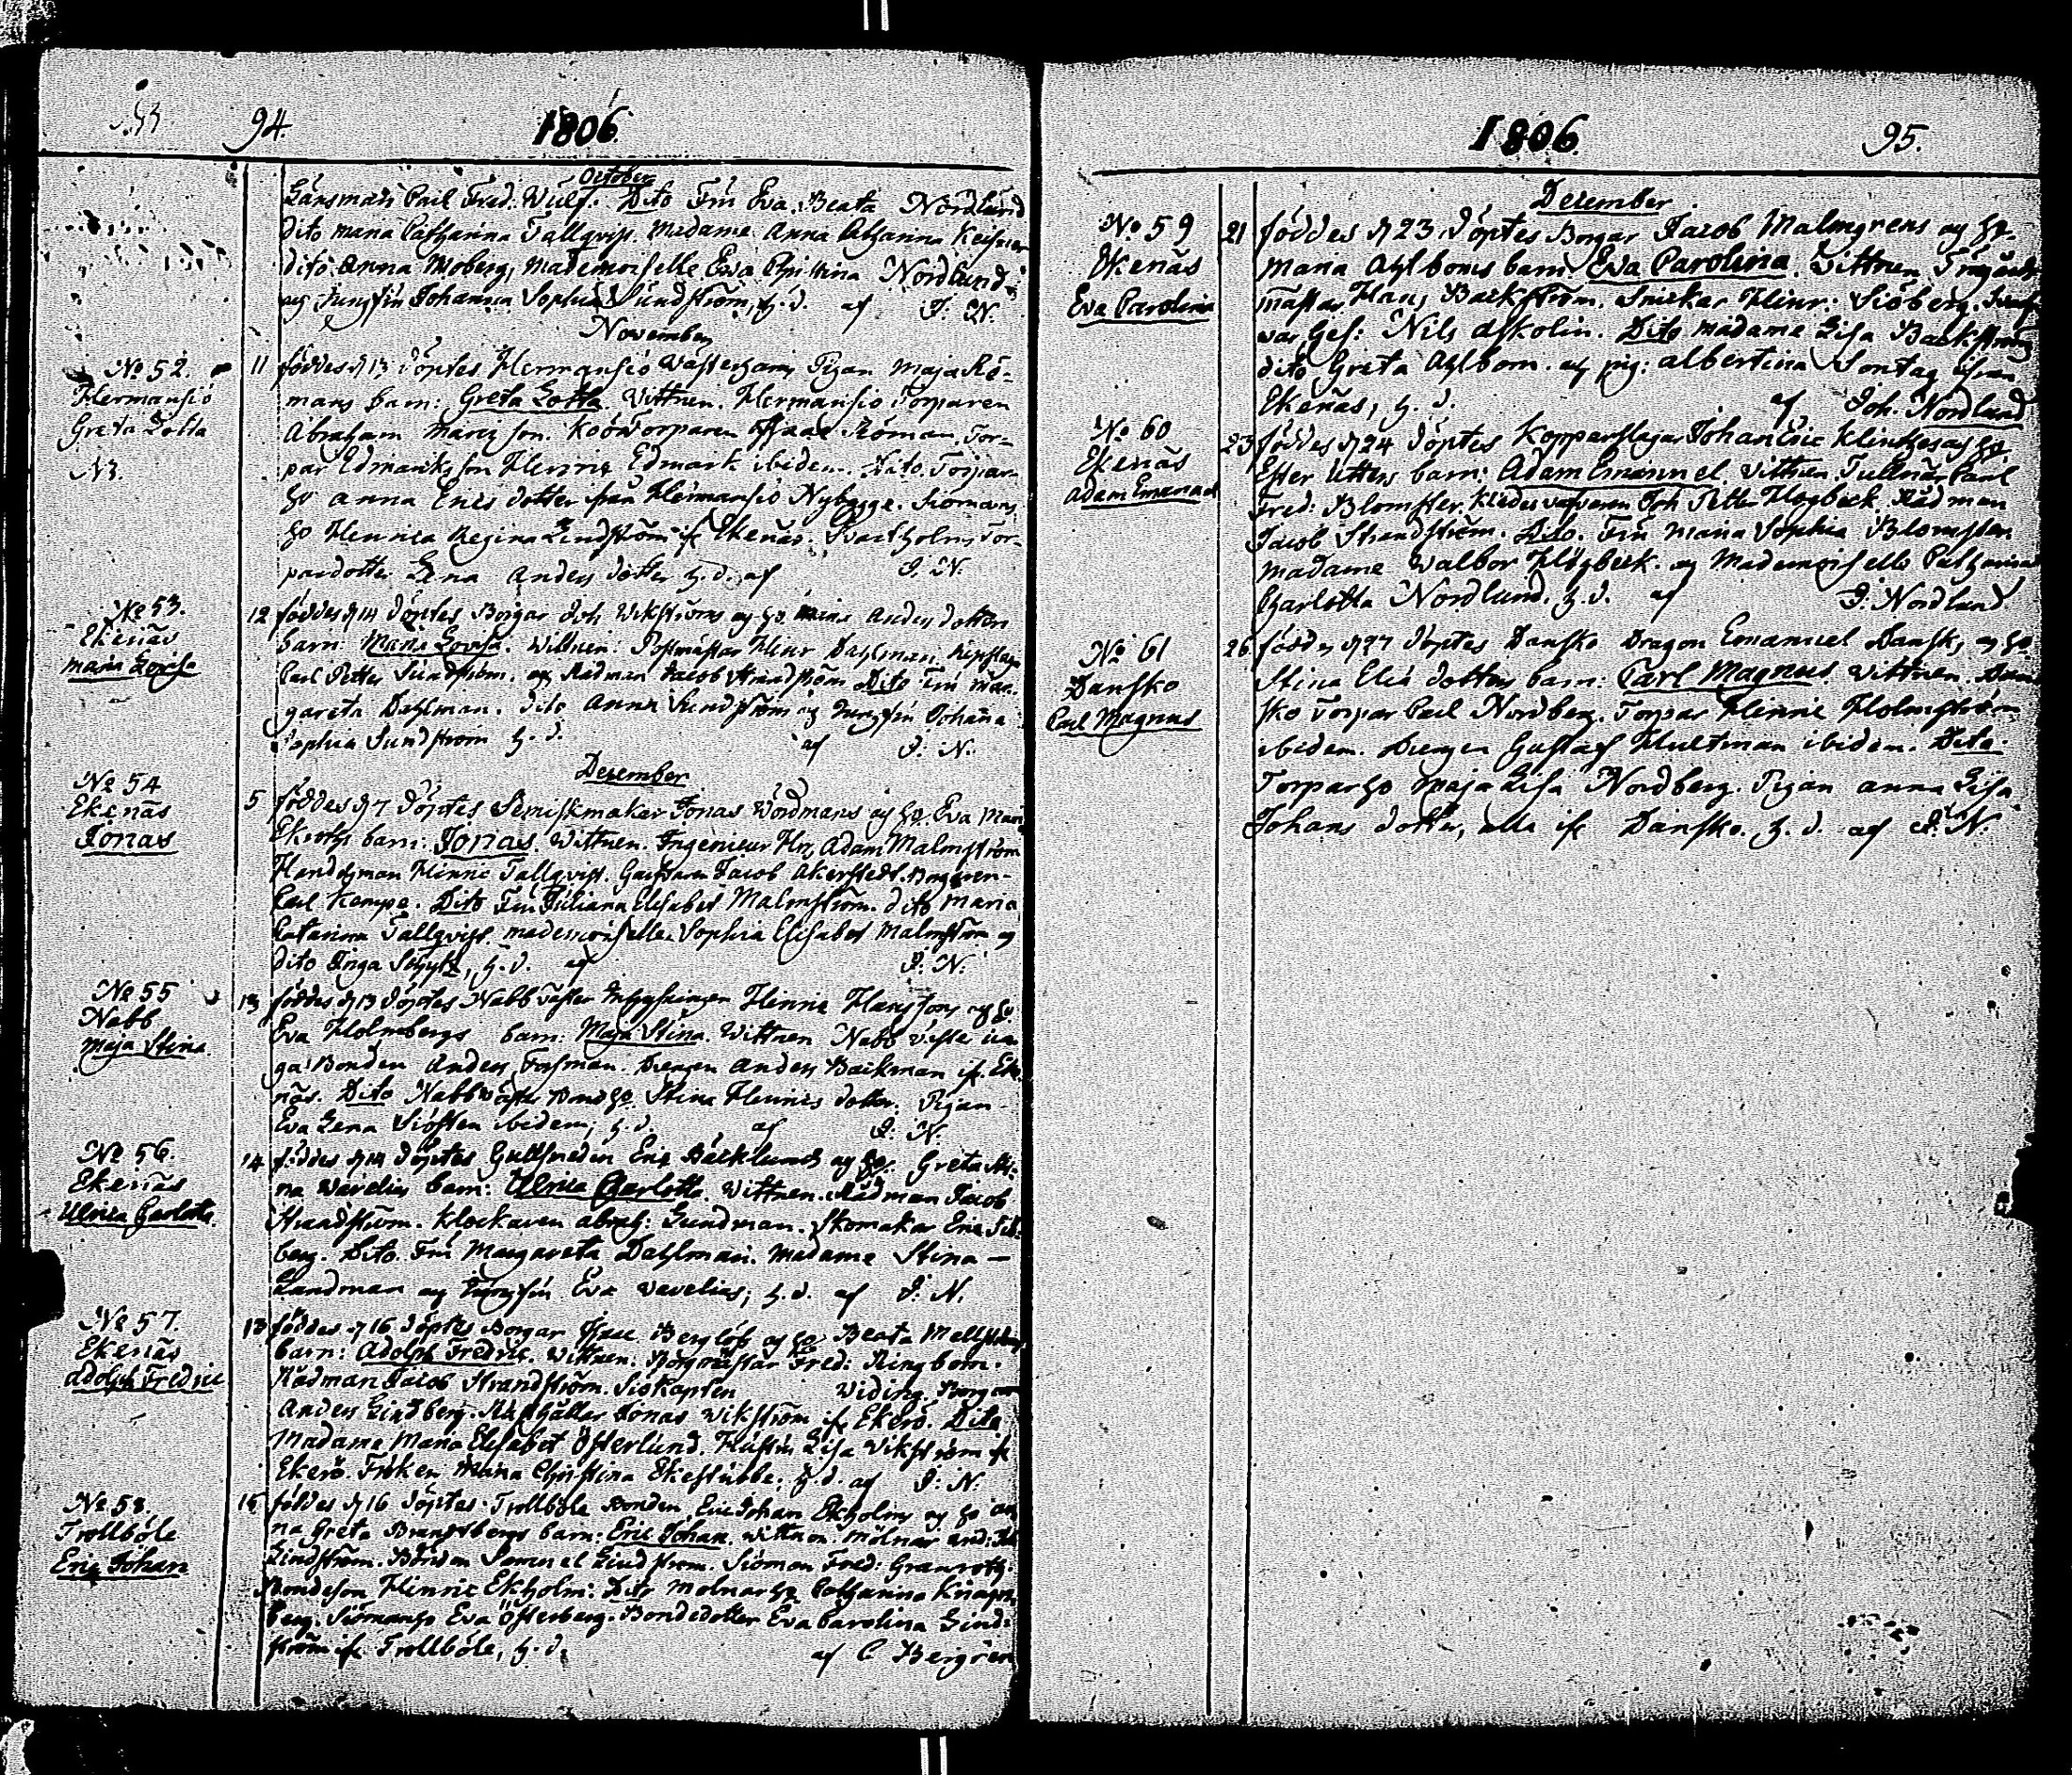 94.
1806.
October
Länsman Carl Fred: Wulf. Dito Fru Eva Beata Nordlund
dito Maria Catharina Tallqvist. Madame Anna Catharina
dito Anna Moberg, Mademoiselle Eva Christina Nordlund
og Jungfrun Johanna Sophia Sundström, h. d. af J: N.
November
No 52.
Hermansiö
Greta Lotta
N3.
11 föddes d 13 döptes Hermansiö Pigan Maja Rö-
mans barn: Greta Lotta. Wittnen. Hermansiö Torparen
Abraham son. Torparen Isaac Röman, Tor-
par Edmarks son Henric Edmark ibidem. Dito. Torpar-
ho Anna Erics dotter från Hermansiö Nybygge. Siömans
ho Henrica Regina Lindström if. Ekenäs. Tor-
pardotter Lena Anders dotter h. d. af J. N.
No 53.
Ekenäs
Maria Lovisa
12 föddes d 14 döptes Borgar Joh Wikströms og ho Maria Anders dotters
barn: Maria Lovisa. Wittnen: Postmästar Henr Dahlman.
Carl Petter Sundström. og Rådman Jacob Strandström Dito Fru Mar-
gareta Dahlman. dito Anna Sundström og Jungfrun Johanna
Sophia Sundström h. d. af J: N.
December
No 54
Ekenäs
Jonas
5 föddes d 7 döptes Jonas Wördmans og ho. Eva Maria
barn: Jonas. Wittnen. Ingenieur Hr Adam Malmström
Handelsman Henric Tallqvist. Jacob Åkerstedt. Borgaren
Carl Kempe. Dito Fru Juliana Elisabet Malmström. dito Maria
Catarina Tallqvist. Mademoiselle Sophia Elisabet Malmström og
dito Inga h. d. af J: N.
No 55
Nabb
Maja Stina
13 föddes d 13 döptes Nabb Väster Inhysingen Henric Hanssons og ho.
Eva Holmbergs barn: Maja Stina. Wittnen Nabb
Bonden Anders Forsman. Drengen Anders Backman if. Eke-
näs. Dito Nabb Väster Bond ho Stina Henrics dotter. Pigan
Eva Lena Siösten ibidem, h. d. af J: N.
No 56.
Ekenäs
Ulrica Charlotta.
14 föddes d 14 döptes Gullsmeden Eric Bäcklunds og ho. Greta Sti-
na Wavelias barn: Ulrica Charlotta. Wittnen. Rådman Jacob
Strandström. Klockaren Abrah: Lundman. Skomakar Eric Siö-
berg. Dito. Fru Margareta Dahlman. Madame Stina —
Landman og Jungfrun Eva Wavelias, h. d. af J. N.
No 57.
Ekenäs
Adolph Fredric
13 föddes d 16 döptes Borgar Isaac Berglöfs og ho Beata
barn: Adolph Fredric. Wittnen. Borgmästar Fred: Ringbom.
Rådman Jacob Strandström. Siökapten Widing. Borgaren
Anders Lindberg. Jonas Wikström if. Ekerö. Dito
Madame Maria Elisabet Österlund. Lisa Wikström if
Ekerö. Fröken Maria Christina Ekestubbe. h. d. af J: N.
No 58.
Trollböle
Eric Johan
15 föddes d 16 döptes Trollböle Bonden Eric Johan Ekholms og ho An-
na Greta barn: Eric Johan. Wittnen. Mölnar
Lindström. Bonden Samuel Lindström. Siöman Fred: Granroth.
Bondeson Henric Ekholm. Dito Molnar ho Catharina
berg. Siömans ho Eva Österberg. Bondedotter Eva Carolina Lind-
ström if. Trollböle, h. d. af C Bergren
1806.
95.
December
No 59
Ekenäs
Eva Carolina
21 föddes d 23 döptes Borgar Jacob Malmgrens og ho
Maria Ahlboms barn Eva Carolina. Wittnen.
mästar Hans Backström. Snickar Henr: Siöberg.
Ges: Nils Askolin. Dito Madame Lisa Backström
dito Greta Ahlbom. og pig: Albertina Sontag ifrån
Ekenäs, h. d. af Joh. Nordlund
No 60
Ekenäs
Adam Emanuel
23 föddes d 24 döptes Kopparslagar Johan Eric og ho
Ester Utters barn: Adam Emanuel. Wittnen. Tullnär Carl
Fred: Blomster. Joh Petter Högbeck. Rådman
Jacob Strandström. Dito. Fru Maria Sophia Blomster
Madame Walbor Högbeck. og Mademoiselle Catharina
Charlotta Nordlund. h. d. af J. Nordlund.
No 61
Dansko
Carl Magnus
26 föddes d 27 döptes Dansko Dragon Emanuel Dansk, og ho
Stina Elis dotters barn: Carl Magnus. Wittnen. Dan-
sko Torpar Carl Nordberg. Torpar Henric Holmström
ibidem. Drengen Gustaf Hultman ibidem. Dito.
Torpar ho Maja Lisa Nordberg. Pigan Anna Lisa
Johans dotter, alla if Dansko. h. d. af J. N.